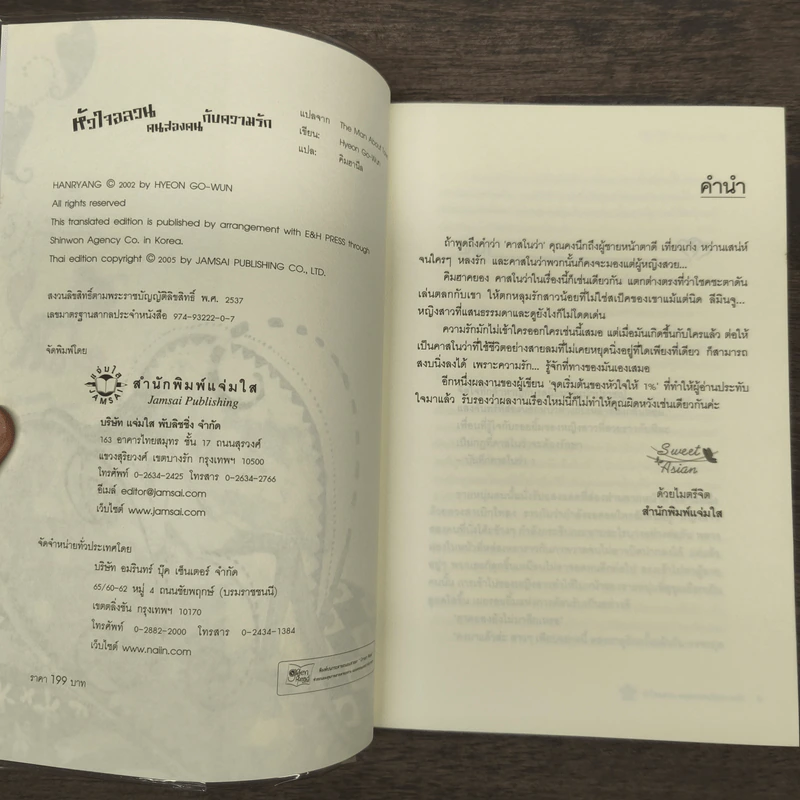 หัวใจอลวน
คนสองคน
กับความรัก
แปลจาก The Man About
เขียน: Hyeon Go-Wun
แปล: คิมฮานึล
HANRYANG © 2002 by HYEON GO-WUN
All rights reserved
This translated edition is published by arrangement with E&H PRESS through
Shinwon Agency Co. in Korea.
Thai edition copyright © 2005 by JAMSAI PUBLISHING CO., LTD.
สงวนลิขสิทธิ์ตามพระราชบัญญัติลิขสิทธิ์ พ.ศ. 2537
เลขมาตรฐานสากลประจำหนังสือ 974-93222-0-7
จัดพิมพ์โดย
แจ่มใส
JAMSAI
สำนักพิมพ์แจ่มใส
Jamsai Publishing
บริษัท แจ่มใส พับลิชชิ่ง จำกัด
163 อาคารไทยสมุทร ชั้น 17 ถนนสุรวงศ์
แขวงสุริยวงศ์ เขตบางรัก กรุงเทพฯ 10500
โทรศัพท์ 0-2634-2425 โทรสาร 0-2634-2766
อีเมล์ editor@jamsai.com
เว็บไซต์ www.jamsai.com
จัดจำหน่ายทั่วประเทศโดย
บริษัท อมรินทร์ บุ๊ค เซ็นเตอร์ จำกัด
65/60-62 หมู่ 4 ถนนชัยพฤกษ์ (บรมราชชนนี)
เขตตลิ่งชัน กรุงเทพฯ 10170
โทรศัพท์ 0-2882-2000 โทรสาร 0-2434-1384
เว็บไซต์ www.naiin.com
ราคา 199 บาท
คำนำ
ถ้าพูดถึงคำว่า 'คาสโนว่า' คุณคงนึกถึงผู้ชายหน้าตาดี เที่ยวเก่ง หว่านเสน่ห์
จนใครๆ หลงรัก และคาสโนว่าพวกนั้นก็คงจะมองแต่ผู้หญิงสวย...
คิมฮาคยอง คาสโนว่าในเรื่องนี้ก็เช่นเดียวกัน แตกต่างตรงที่ว่าโชคชะตาดัน
เล่นตลกกับเขา ให้ตกหลุมรักสาวน้อยที่ไม่ใช่สเป็คของเขาแม้แต่นิด ลีมินจู...
หญิงสาวที่แสนธรรมดาและดูยังไงก็ไม่โดดเด่น
ความรักมักไม่เข้าใครออกใครเช่นนี้เสมอ แต่เมื่อมันเกิดขึ้นกับใครแล้ว ต่อให้
เป็นคาสโนว่าที่ใช้ชีวิตอย่างสายลมที่ไม่เคยหยุดนิ่งอยู่ที่ใดเพียงที่เดียว ก็ยังสามารถ
สงบนิ่งลงได้ เพราะความรัก... รู้จักที่ทางของมันเองเสมอ
อีกหนึ่งผลงานของผู้เขียน 'จุดเริ่มต้นของหัวใจให้ 1%' ที่ทำให้ผู้อ่านประทับ
ใจมาแล้ว รับรองว่าผลงานเรื่องใหม่นี้ก็ไม่ทำให้คุณผิดหวังเช่นเดียวกันค่ะ
Sweet
Asian
ด้วยไมตรีจิต
สำนักพิมพ์แจ่มใส